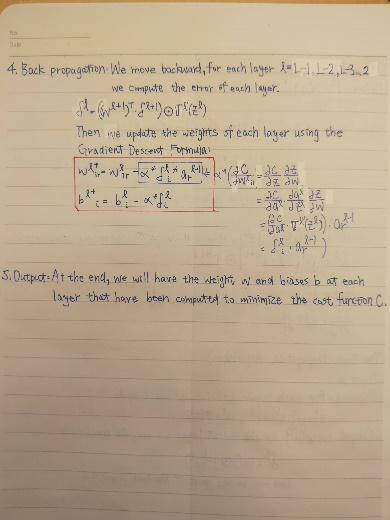 No.
Date
4. Back propagation: We move backward, for each layer l=L-1, L-2, L-3...2
we compute the error of each layer.
δ^l = (w^{l+1})^T · δ^{l+1}) ⊙ σ'(z^l)
Then we update the weights of each layer using the
Gradient Descent Formula:
w^{l+}_{ir} = w^l_{ir} - α * δ^l_i * a_r^{l-1} α * (∂C/∂w^l_{ir} = ∂C/∂z ∂z/∂w
b^{l+}_i = b^l_i - α * δ^l_i = ∂C/∂a^l ∂a^l/∂z^l ∂z/∂w
= (∂C/∂a^l · σ'(z^l)) · a_r^{l-1}
= δ^l_i · a_r^{l-1})
5. Output: At the end, we will have the weight w and biases b at each
layer that have been computed to minimize the cost function C.